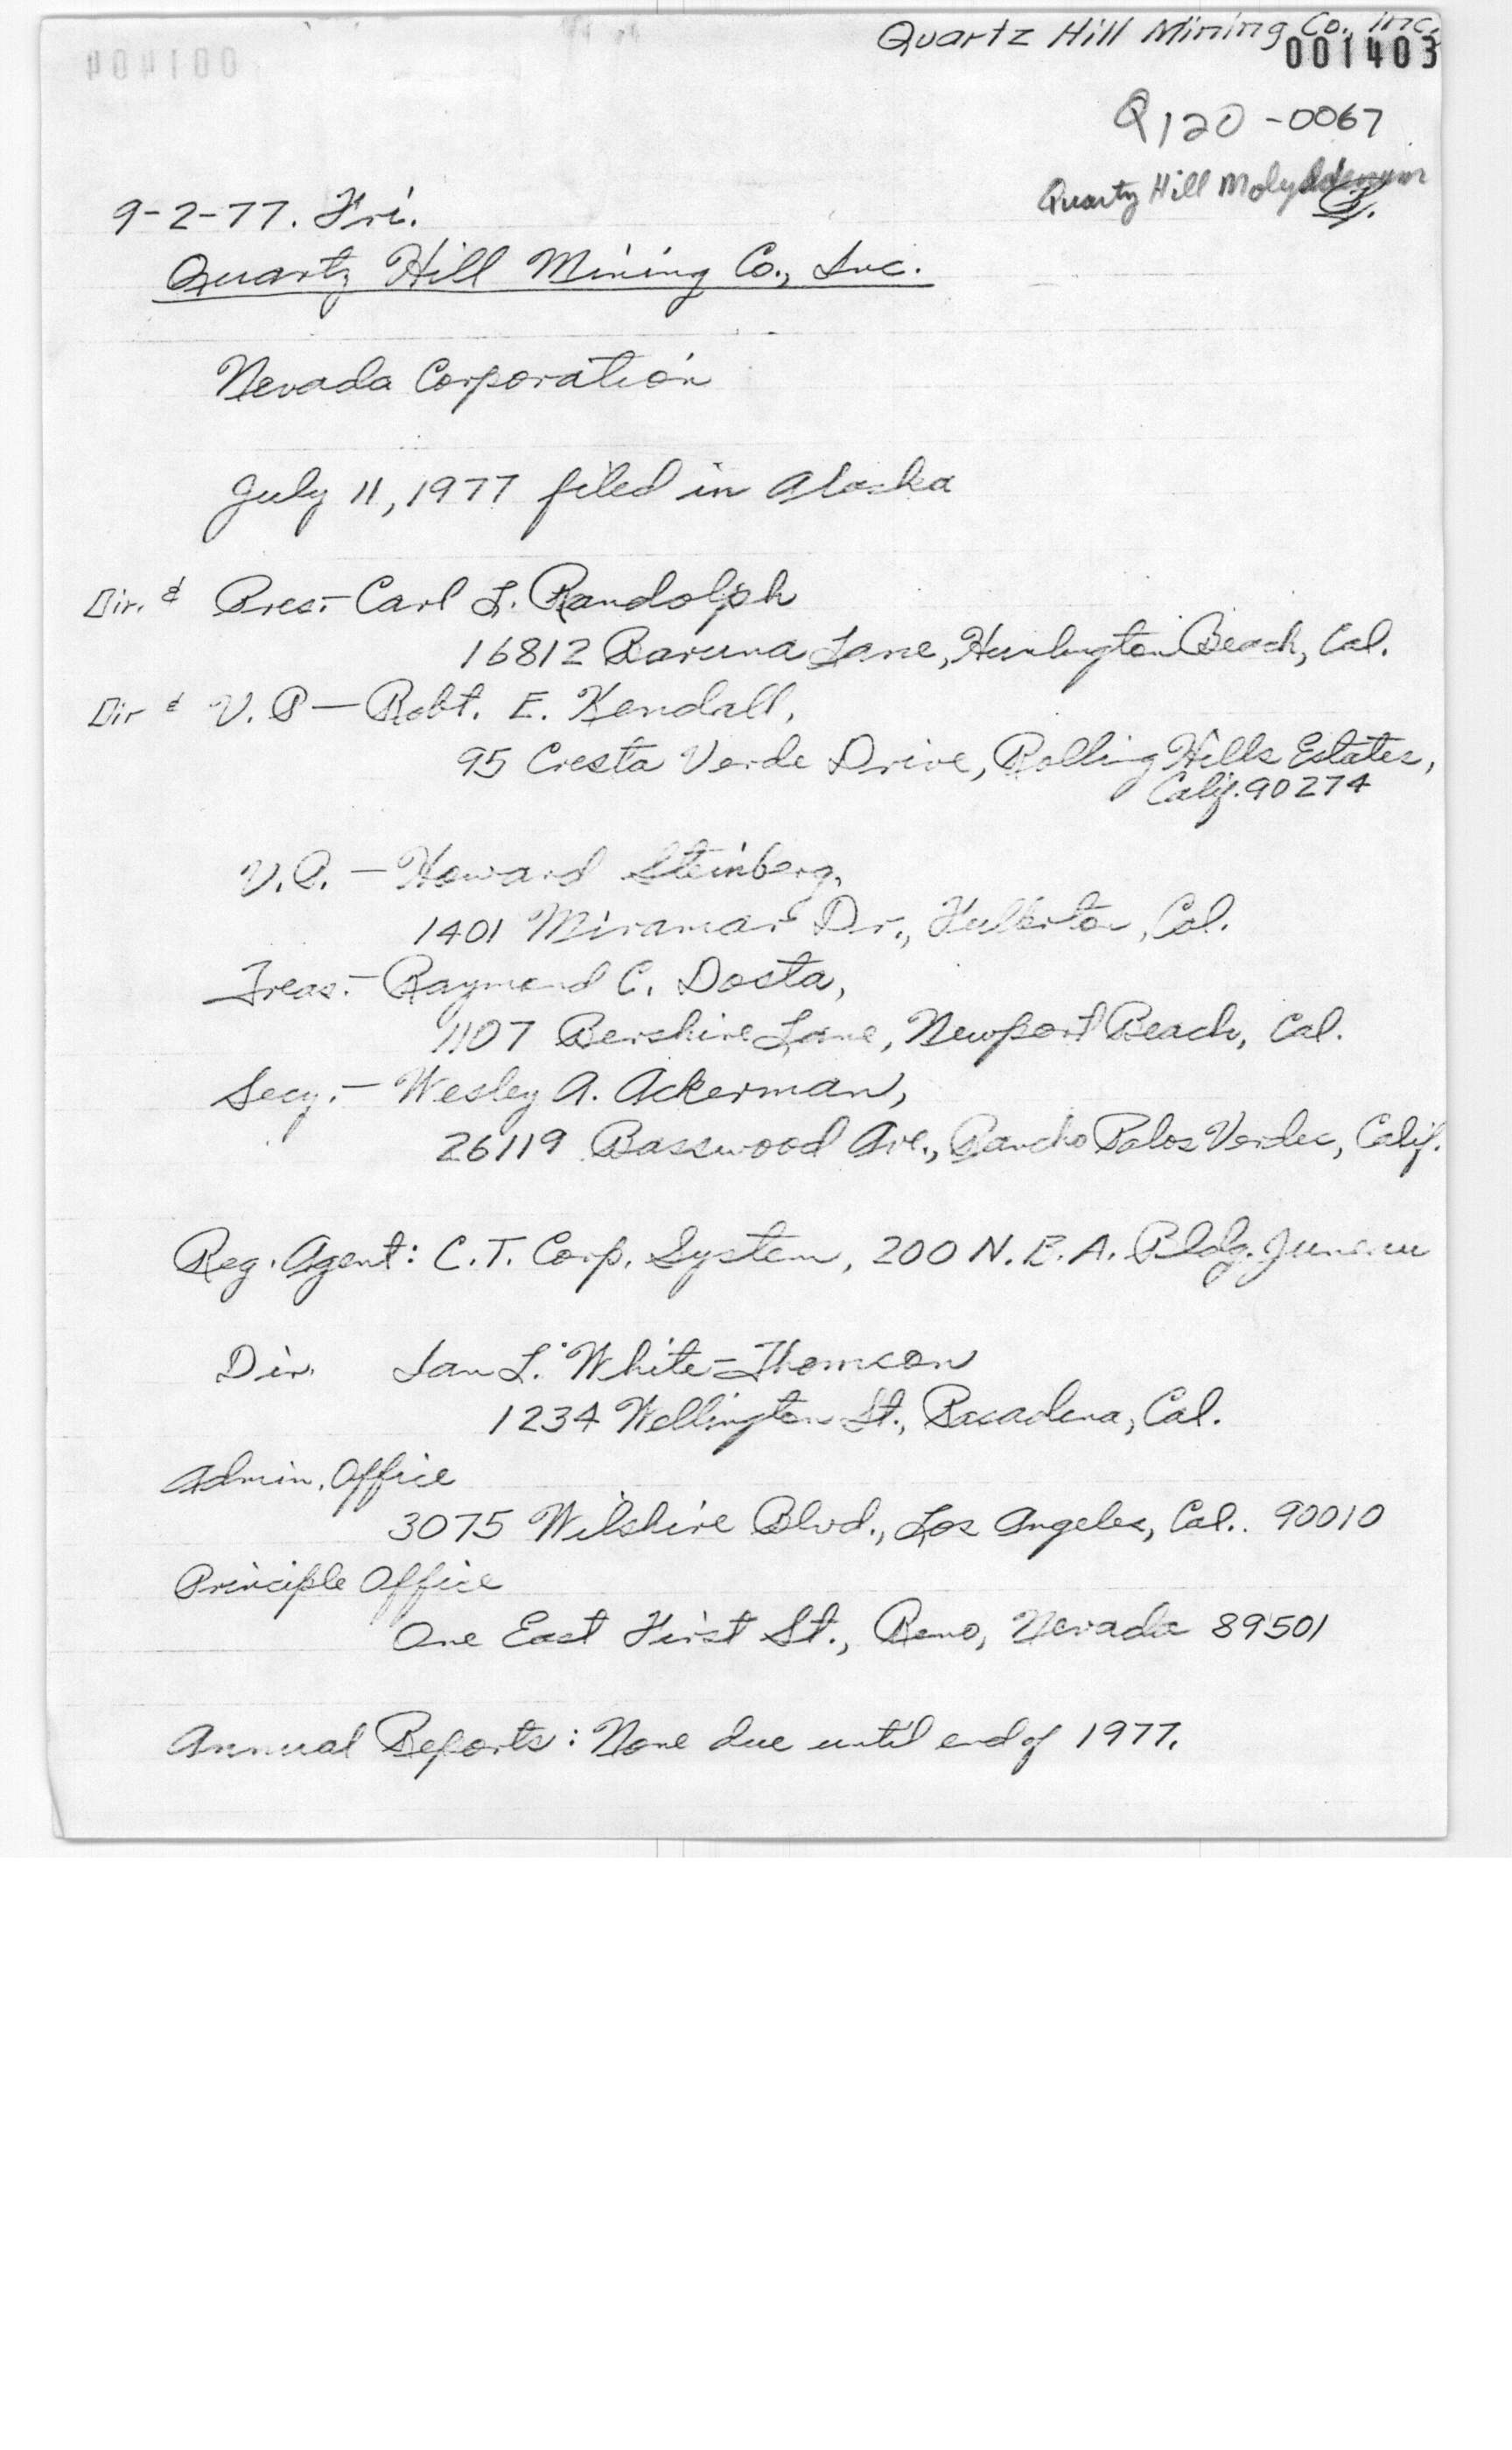 Quartz Hill Mining Co., Inc.
001403
Q120-0067
Quartz Hill Molybdenum
9-2-77. Fri.
Quartz Hill Mining Co., Inc.
Nevada Corporation
July 11, 1977 filed in Alaska
Dir. & Pres.- Carl L. Randolph
16812 Baruna Lane, Huntington Beach, Cal.
Dir & V.P - Robt. E. Kendall,
95 Cresta Verde Drive, Rolling Hills Estates,
Calif. 90274
V.P. - Howard Steinberg,
1401 Miramar Dr., Fullerton, Cal.
Treas.- Raymond C. Dosta,
1107 Bershire Lane, Newport Beach, Cal.
Secy.- Wesley A. Ackerman,
26119 Basswood Ave., Rancho Palos Verdes, Calif.
Reg. Agent: C.T. Corp. System, 200 N.B.A. Bldg. Juneau
Dir. Ian L. White-Thomson
1234 Wellington St., Pasadena, Cal.
Admin. Office
3075 Wilshire Blvd., Los Angeles, Cal.. 90010
Principle Office
One East First St., Reno, Nevada 89501
Annual Reports: None due until end of 1977.